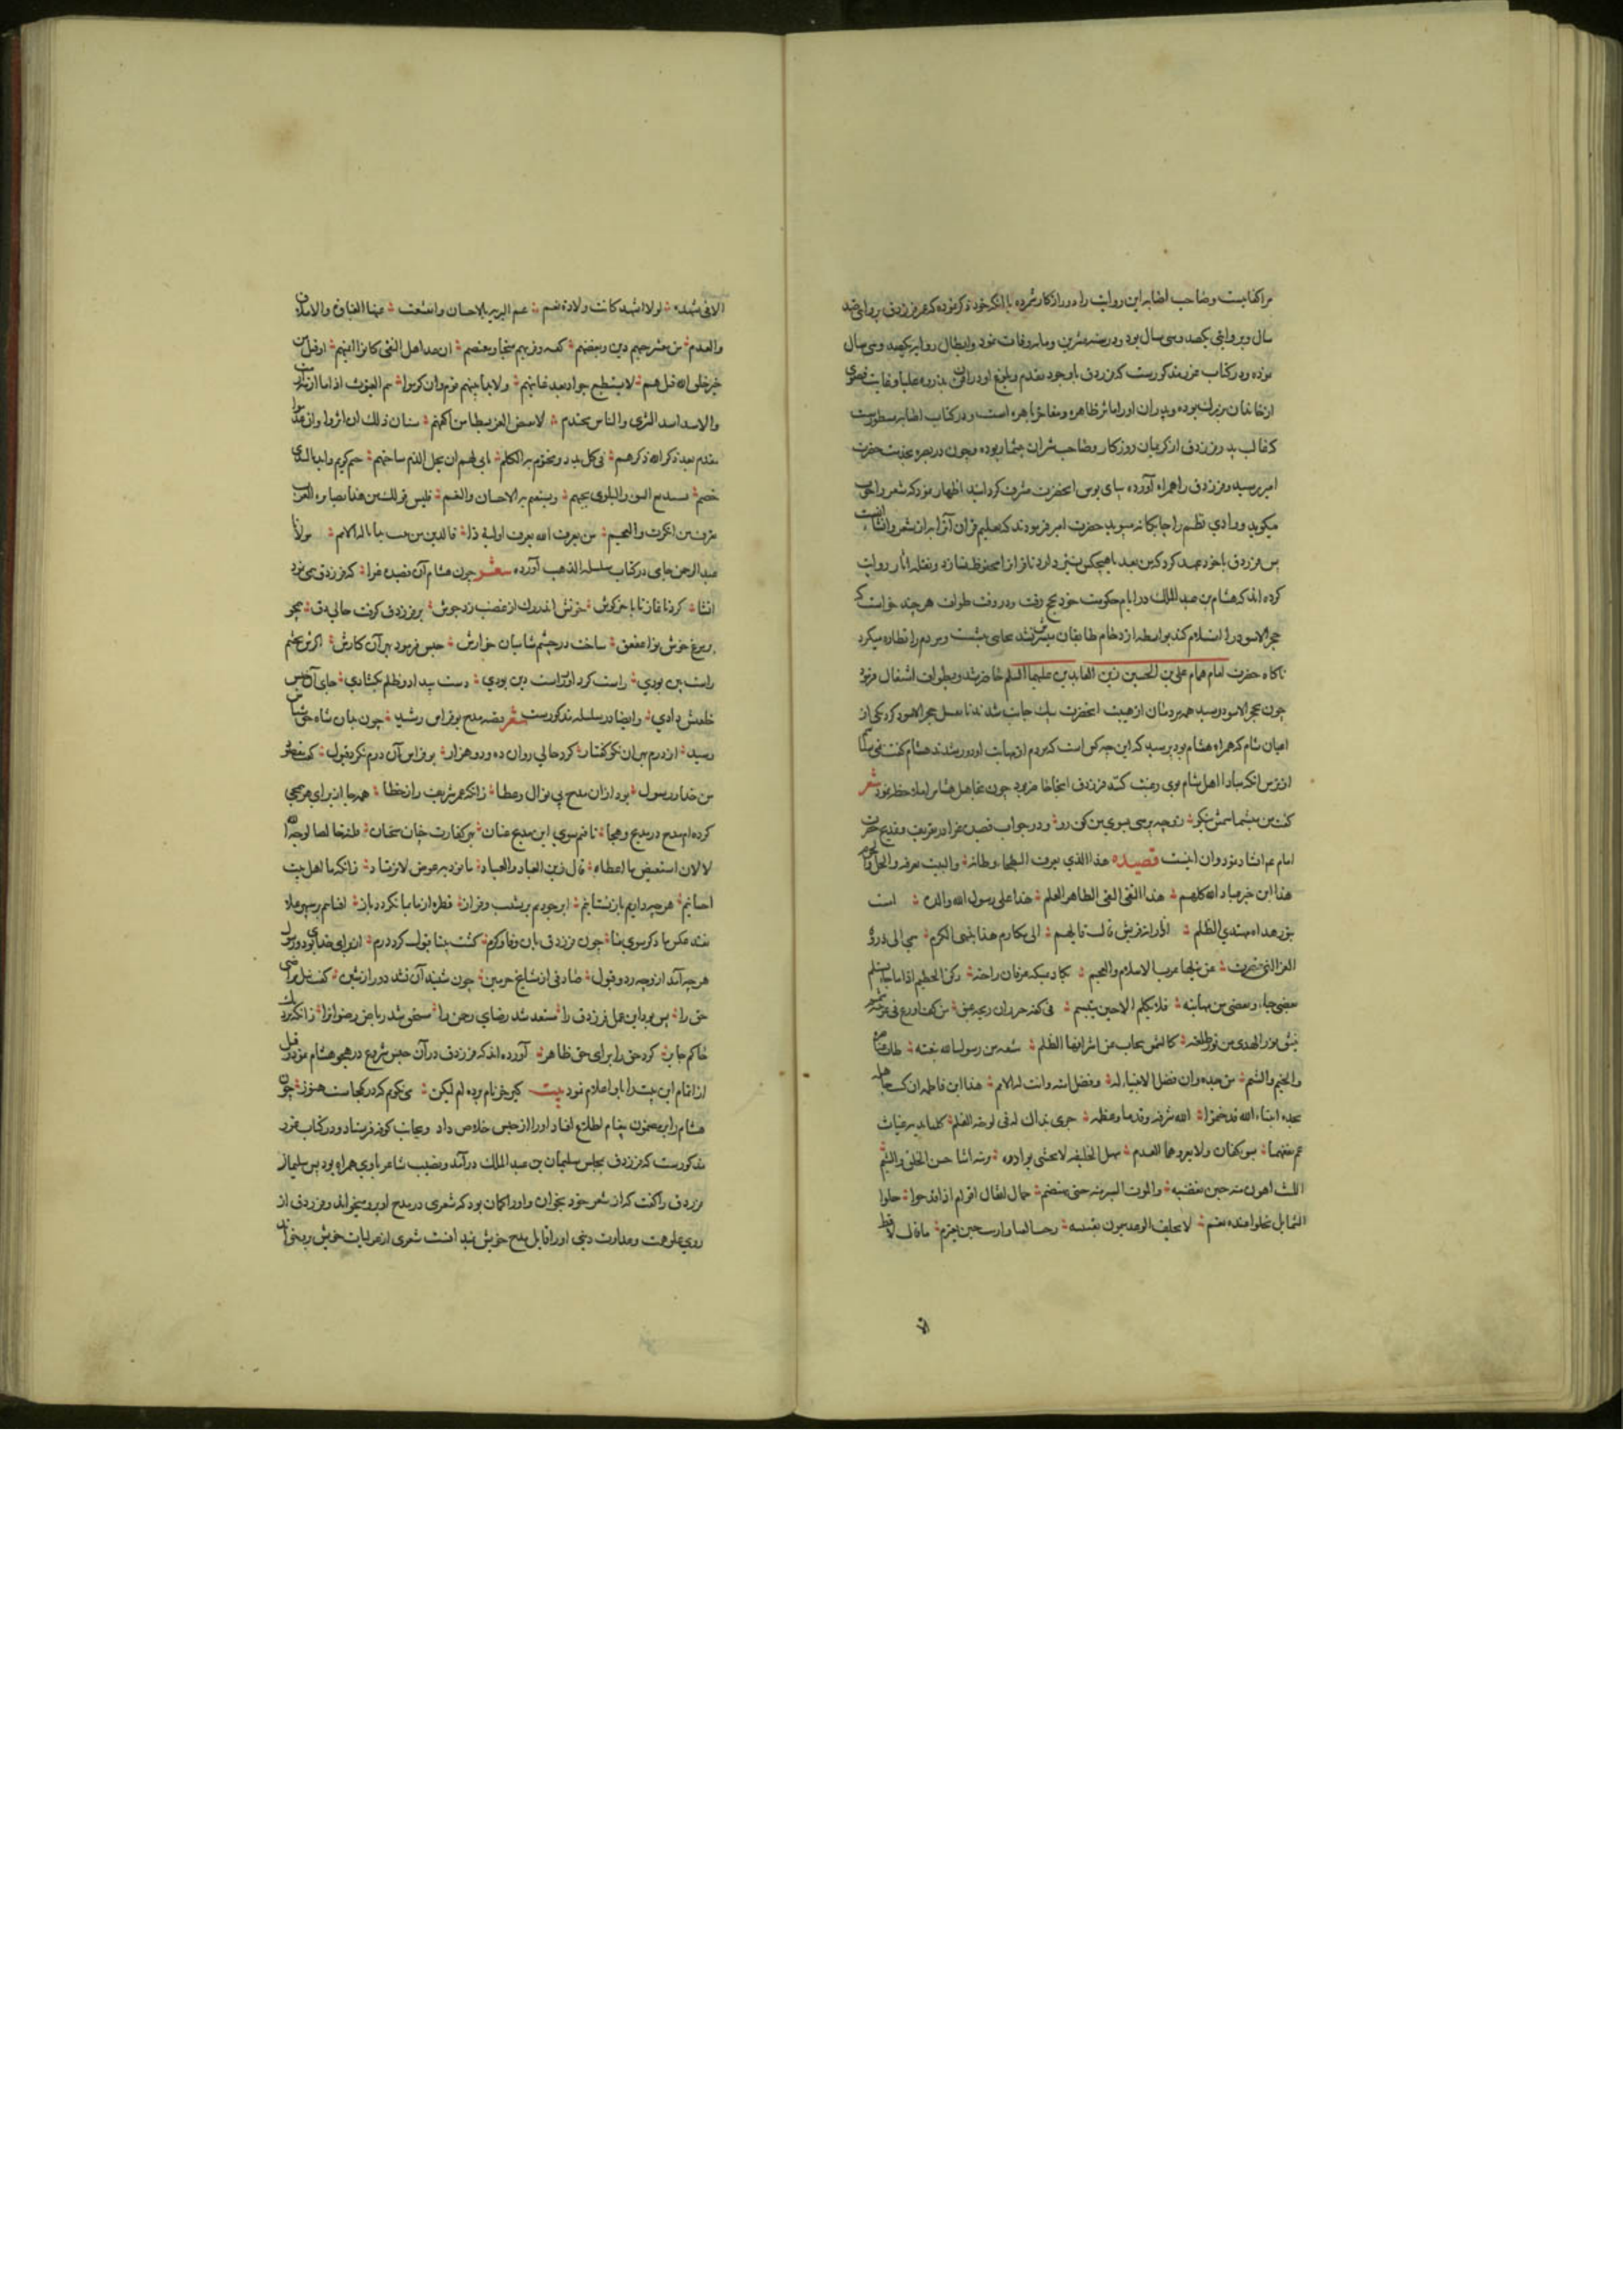 مراکفایست وصاحب اصابه این روایت را دور از کار شمرده با آنکه خود ذکر نموده که عمر فرزدق بروایتی صد
سال وبروایتی یکصد وسی سال بود ودر سنه عشرین ومایه وفات نمود وابطال روایه یکصد وسی سال
نموده ودر کتاب مزبور مذکورست که فرزدق باوجود تقدم وبلوغ او در اقران بذروه علیا وغایت قصوی
از خاندان بزرك بوده وپدران اورا مآثر ظاهره ومفاخر باهره است ودر کتاب اصابه مسطورست
که غالب پدر فرزدق از کریمان روزکار وصاحب شتران بیشمار بوده وچون در بصره بخدمت حضرت
امیر رسید وفرزدق را همراه آورده بپای بوس آنحضرت مشرف کردانید اظهار نمود که شعر را خوب
میکوید ووادی نظم را چابکانه میپوید حضرت امیر فرمودند که تعلیم قرآن او را به از شعر وانشاء است
پس فرزدق با خود عهد کرد که من بعد بهیچکس نپردازد تا قرانرا محفوظ نسازد ونقله آثار روایت
کرده اند که هشام بن عبد الملك در ایام حکومت خود بحج رفت ودر وقت طواف هر چند خواست که
حجر الاسود را استلام کند بواسطه ازدحام طایفان میسرش نشد بجایی نشست ومردم را نظاره میکرد
ناکاه حضرت امام همام علی بن الحسین زین العابدین علیهما السلم حاضر شد وبطواف اشتغال فرمود
چون بحجر الاسود رسید همه مردمان از هیبت آنحضرت بیك جانب شدند تا استلام حجر الاسود کرد یکی از
اعیان شام که همراه هشام بود پرسید که این چه کس است که مردم از مهابت او دور شدند هشام گفت نمی شناسم
از ترس آنکه مبادا اهل شام بوی رغبت کنند فرزدق آنجا حاضر بود چون تجاهل هشام را ملاحظه نمود شعر
کفت من میشناسمش نیکو ؛ زو چه پرسی بسوی من کن رو ؛ ودر جواب قصیده غرا در تعریف ومدیح حضرت
امام علم انشاد نمود وان اینست قصیده هذا الذی تعرف البطحاء وطاته ؛ والبیت یعرفه والحل والحرم
هذا ابن خیر عباد الله کلهم ؛ هذا التقی النقی الطاهر العلم ؛ هذا علی رسول الله والده ؛ امست
بنور هداه تهتدی الظلم ؛ اذا راته قریش قال قایلهم ؛ الی مکارم هذا ینتهی الکرم ؛ ینمی الی ذروة
العز التی قصرت ؛ عن نیلها عرب الاسلام والعجم ؛ یکاد یمسکه عرفان راحته ؛ رکن الحطیم اذا ما جاء یستلم
یغضی حیاء ویغضی من مهابته ؛ فلا یکلم الا حین یبتسم ؛ فی کفه خیزران ریحه عبق ؛ من کف اروع فی عرنینه شمم
ینشق نور الهدی من نور طلعته ؛ کالشمس ینجاب عن اشراقها الظلم ؛ مشتقة من رسول الله نبعته ؛ طابت عناصره
والخیم والشیم ؛ من جده دان فضل الانبیاء له ؛ وفضل امته دانت له الامم ؛ هذا ابن فاطمه ان کنت جاهله
بجده انبیاء الله قد ختموا ؛ الله شرفه قدما وعظمه ؛ جری بذاك له فی لوحه القلم ؛ کلتا یدیه غیاث
عم نفعهما ؛ یستوکفان ولا یعروهما العدم ؛ سهل الخلیقه لا تخشی بوادره ؛ یزینه اثنان حسن الخلق والشیم
اللیث اهون منه حین تغضبه ؛ والموت ایسر منه حین یهتضم ؛ حمال اثقال اقوام اذا فدحوا ؛ حلو
الشمایل تحلو عنده نعم ؛ لا یخلف الوعد میمون نقیبته ؛ رحب الفناء اریب حین یعتزم ؛ ما قال لا قط
الا فی تشهده ؛ لولا التشهد کانت لاؤه نعم ؛ عم البریه بالاحسان وانقشعت ؛ عنها الغیاهب والاملاق
والعدم ؛ من معشر حبهم دین وبغضهم ؛ کفر وقربهم منجا ومعتصم ؛ ان عد اهل التقی کانوا ائمتهم ؛ او قیل من
خیر خلق الله قیل هم ؛ لا یستطیع جواد بعد غایتهم ؛ ولا یدانیهم قوم وان کرموا ؛ هم الغیوث اذا ما ازمة ازمت
والاسد اسد الشری والباس محتدم ؛ لا ینقص العسر بسطا من اکفهم ؛ سیان ذلك ان اثروا وان عدموا
مقدم بعد ذکر الله ذکرهم ؛ فی کل بدء ومختوم به الکلم ؛ یابی لهم ان یحل الذم ساحتهم ؛ خیم کریم واید بالندی
هضم ؛ یستدفع السوء والبلوی بحبهم ؛ ویستزاد به الاحسان والنعم ؛ فلیس قولك من هذا بضایره العرب
تعرف من انکرت والعجم ؛ من یعرف الله یعرف اولیة ذا ؛ فالدین من بیت هذا ناله الامم ؛ مولانا
عبد الرحمن جامی در کتاب سلسلة الذهب آورده شعر چون هشام آن قصیده غرا ؛ که فرزدق همی نمود
انشا ؛ کرد از آغاز تا بآخر گوش ؛ خونش اندر رك از غضب زد جوش ؛ بر فرزدق گرفت حالی دق ؛ همچو
بر مرغ خوش نوا عقعق ؛ ساخت در چشم شامیان خوارش ؛ حبس فرمود بهر آن کارش ؛ اگرش چشم
راست بین بودی ؛ راست کردار وراست دین بودی ؛ دست بیداد وظلم نکشادی ؛ جای آن حبس
خلعتش دادی ؛ وایضا در سلسله مذکورست شعر قصه مدح بو فراس رشید ؛ چون بدان شاه حق شناس
رسید ؛ از درم بهر آن نکو گفتار ؛ کرد حالی روان ده ودو هزار ؛ بو فراس آن درم نکرد قبول ؛ گفت مقصود
من خدا ورسول ؛ بود از آن مدح نی نوال وعطا ؛ زانکه عمر شریف را ز خطا ؛ همه جا از برای هر همجی
کرده ام صرف در مدیح وهجا ؛ تافتم سوی این مدیح عنان ؛ بهر کفارت چنان سخنان ؛ قلته خالصا لوجه الله
لا لان استعیض ما اعطاه ؛ قال زین العباد والعباد ؛ ما نؤدیه عوض لا نرتداد ؛ زانکه ما اهل بیت
احسانیم ؛ هر چه دادیم باز نستانیم ؛ ابر جودیم بر نشیب وفراز ؛ قطره از ما بما نکردد باز ؛ آفتابیم بر سپهر علا
نفتد عکس ما دکر سوی ما ؛ چون فرزدق بآن وفا وکرم ؛ گشت بینا قبول کرد درم ؛ از برای خدای بود ورسول
هر چه آمد ازو چه رد وقبول ؛ صادقی از مشایخ حرمین ؛ چون شنید آن نشید دور از شین ؛ گفت نیل مراضی
حق را ؛ بس بود این عمل فرزدق را ؛ مستعد شد رضای رحمن را ؛ مستحق شد ریاض رضوانرا ؛ زانکه نزدیك
حاکم جابر ؛ کرد حق را برای حق ظاهر ؛ آورده اند که فرزدق در آن حبس شروع در هجو هشام نمود وقبل
از اتمام این بیت را باو اعلام نمود بیت کیر خر نام برده ام لیکن ؛ می نکویم که در کجاست هنوز ؛ چون
هشام را بر مضمون پیغام اطلاع افتاد اورا از حبس خلاص داد وبجانب کوفه فرستاد ودر کتاب غرر
مذکورست که فرزدق بمجلس سلیمان بن عبد الملك درآمد ونصیب شاعر با وی همراه بود پس سلیمان
فرزدق را کفت که از شعر خود بخوان واورا کمان بود که شعری در مدح او برو میخواند وفرزدق از
روی علو همت وعداوت دینی اورا قابل مدح خویش ندانست شعری از مرثیات خویش بر میخواند